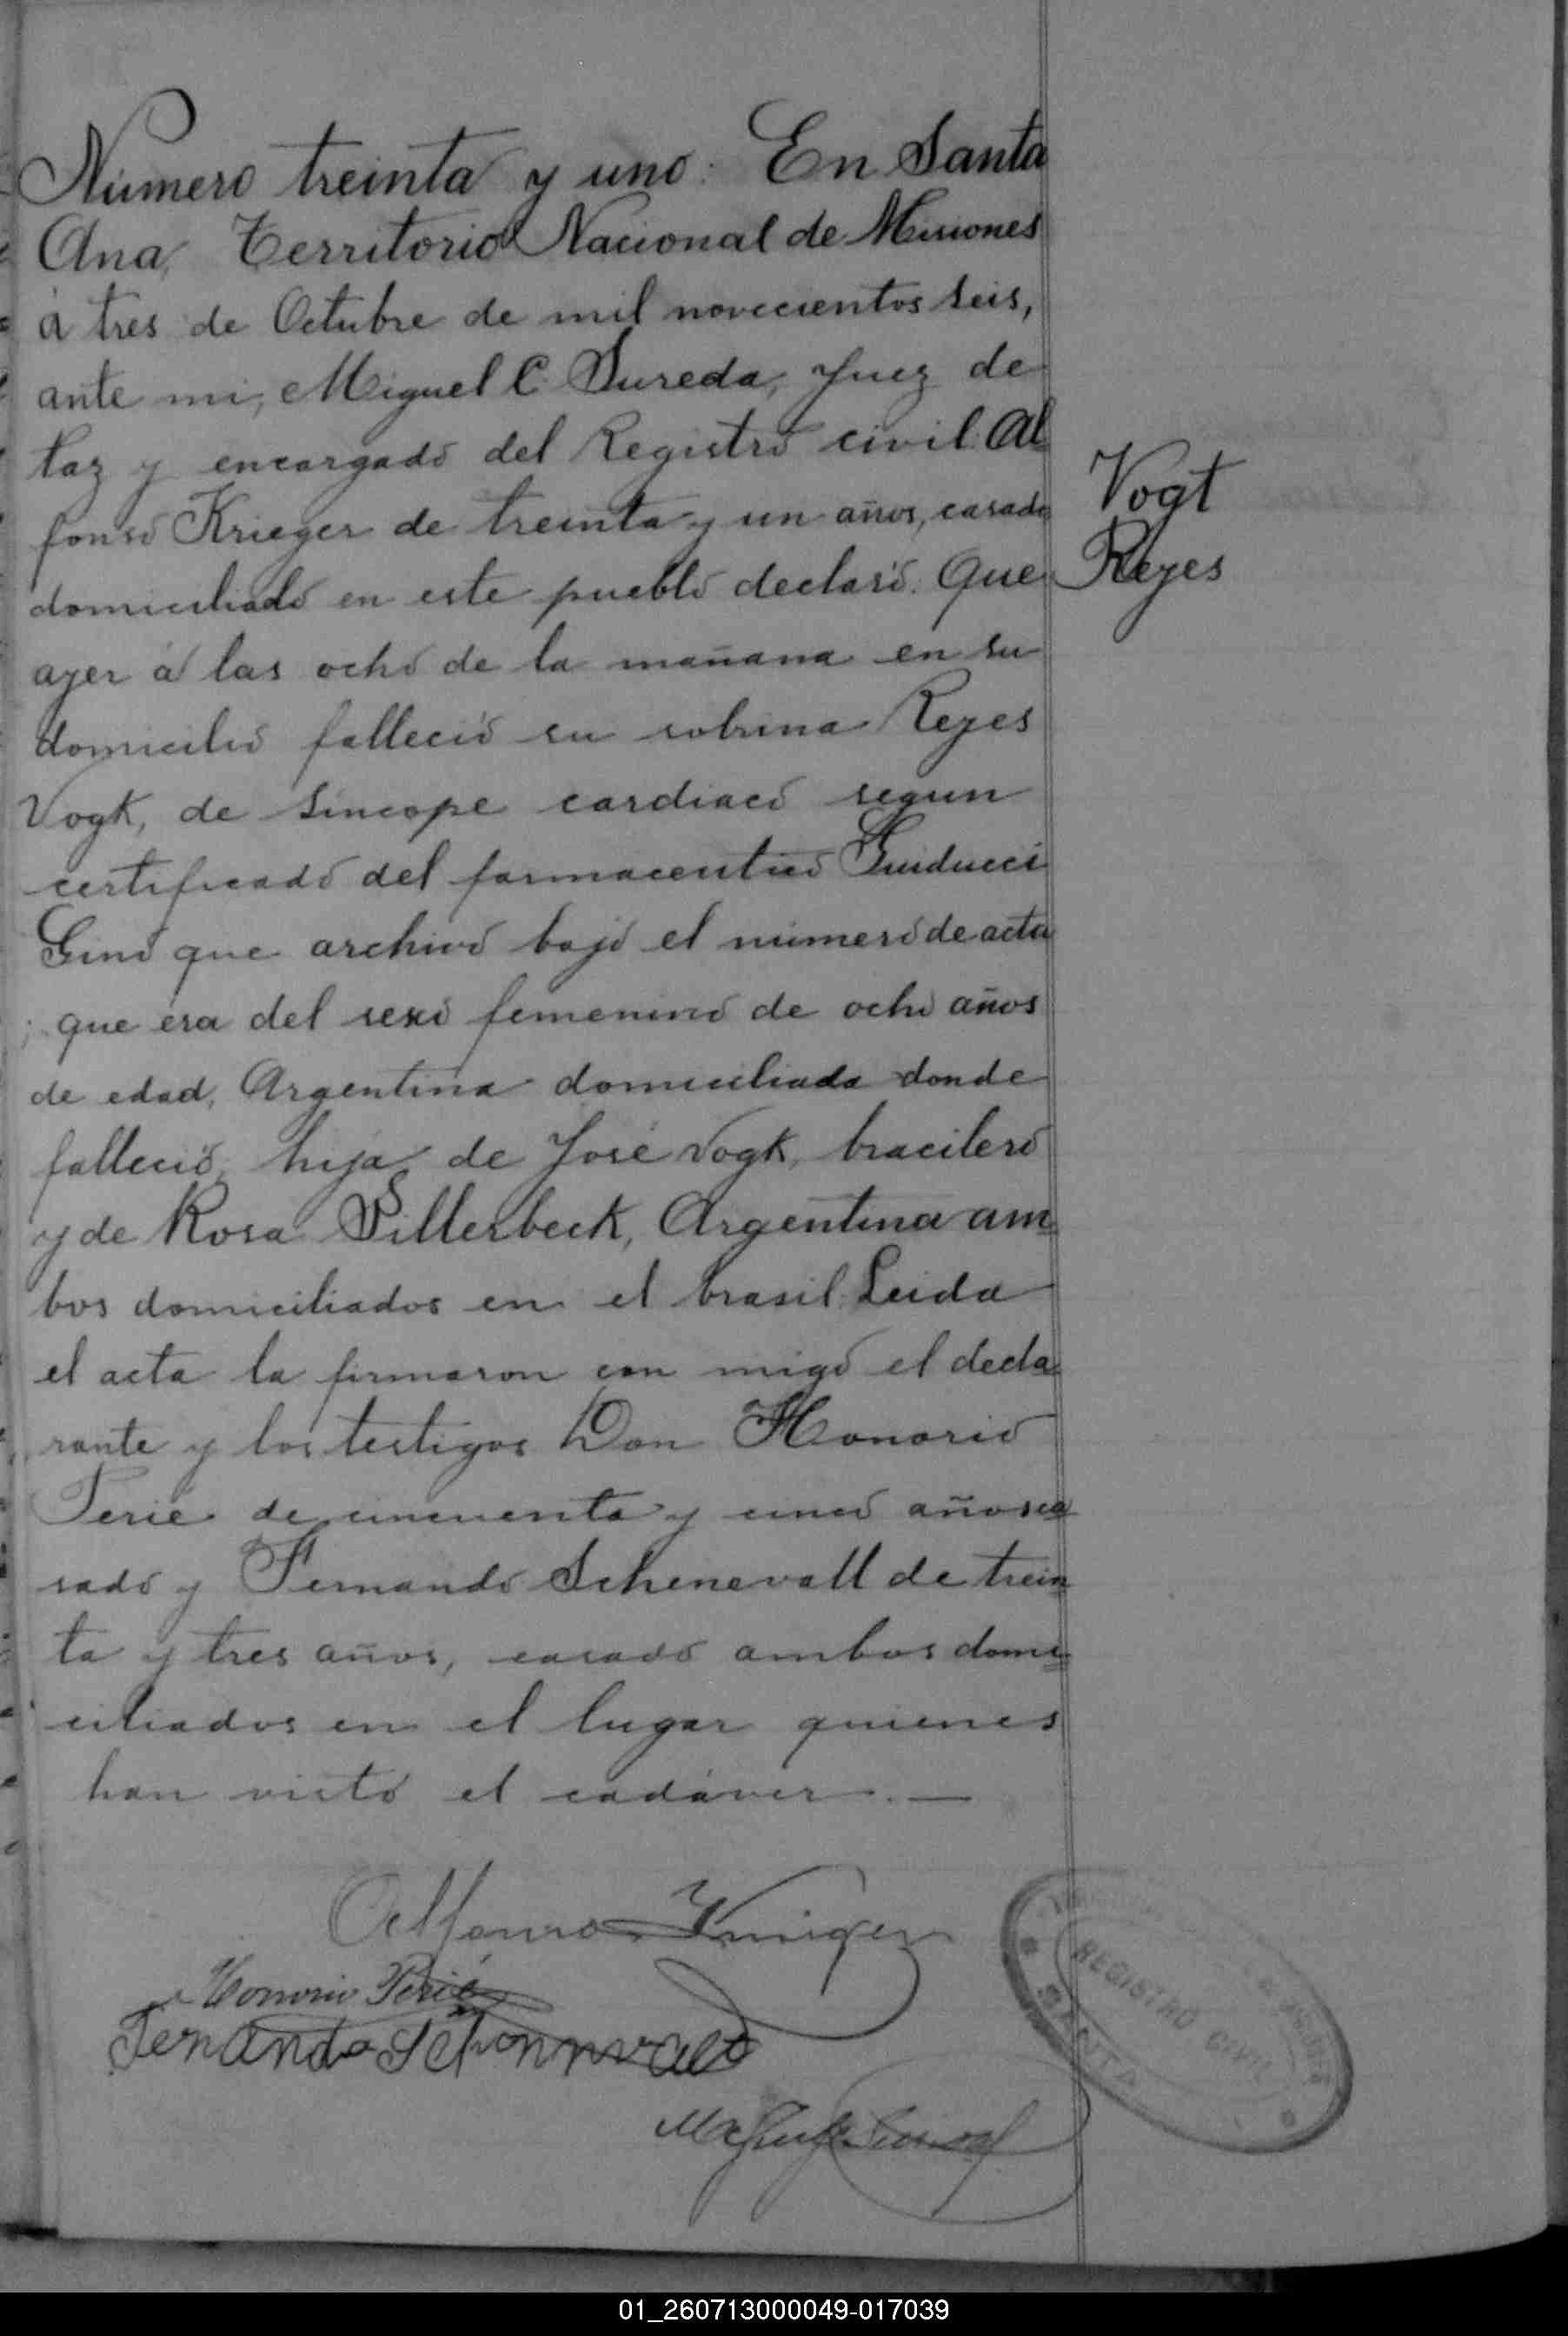 Número treinta y uno: En Santa
Ana, Territorio Nacional de Misiones
á tres de Octubre de mil novecientos seis,
ante mi, Miguel C. Sureda, Juez de
Paz y encargado del Registro civil: Al
fonso Krieger de treinta y un años, casado
domiciliado en este pueblo declaró: Que
ayer á las ocho de la mañana en su
domicilio falleció su sobrina Reyes
Vogk, de síncope cardiaco segun
certificado del farmaceutico Guiducci
Gino que archivo bajo el número de acta
; que era del sexo femenino de ocho años
de edad, Argentina domiciliada donde
falleció, hija de José Vogk, bracilero
y de Rosa Sillerbeck, Argentina am
bos domiciliados en el brasil. Leida
el acta la firmaron con migo el decla
rante y los testigos Don Honorio
Perié de cincuenta y cinco años ca
sado y Fernando Schenevall de trein
ta y tres años, casado ambos domi
ciliados en el lugar quienes
han visto el cadáver. —
Vogt
Reyes
Alfonso Krieger
Honorio Perié
Fernando
REGISTRO CIVIL
SANTA
01_260713000049-017039